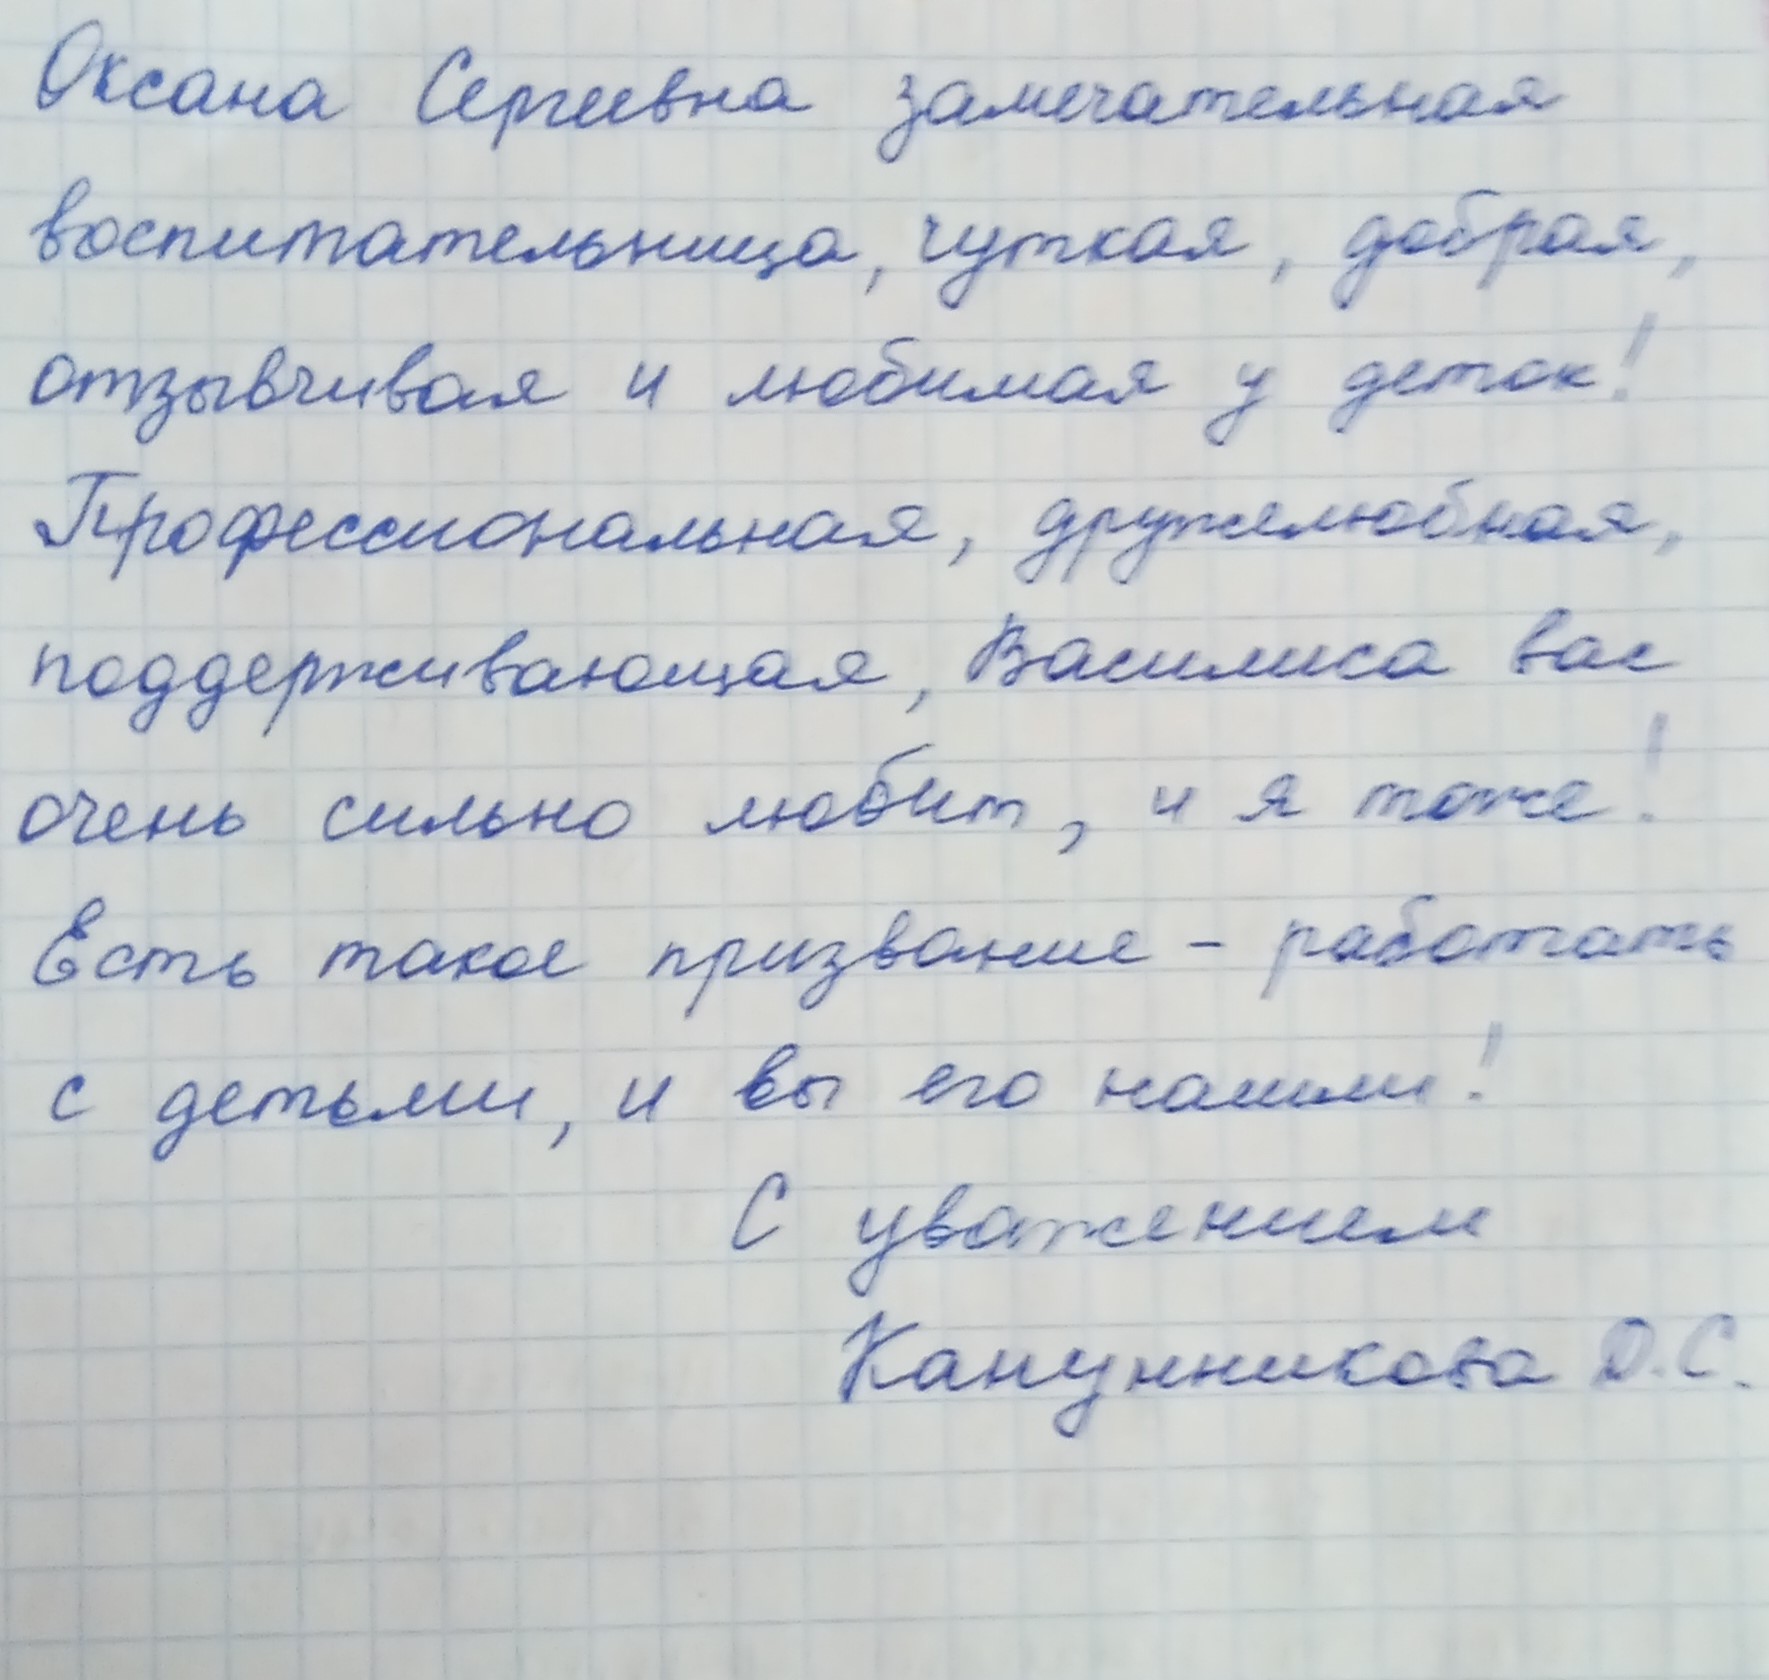 Оксана Сергеевна замечательная
воспитательница, чуткая, добрая,
отзывчивая и любимая у деток!
Профессиональная, дружелюбная,
поддерживающая, Василиса вас
очень сильно любит, и я тоже!
Есть такое призвание - работать
с детьми, и вы его нашли!
С уважением
Канунникова О.С.